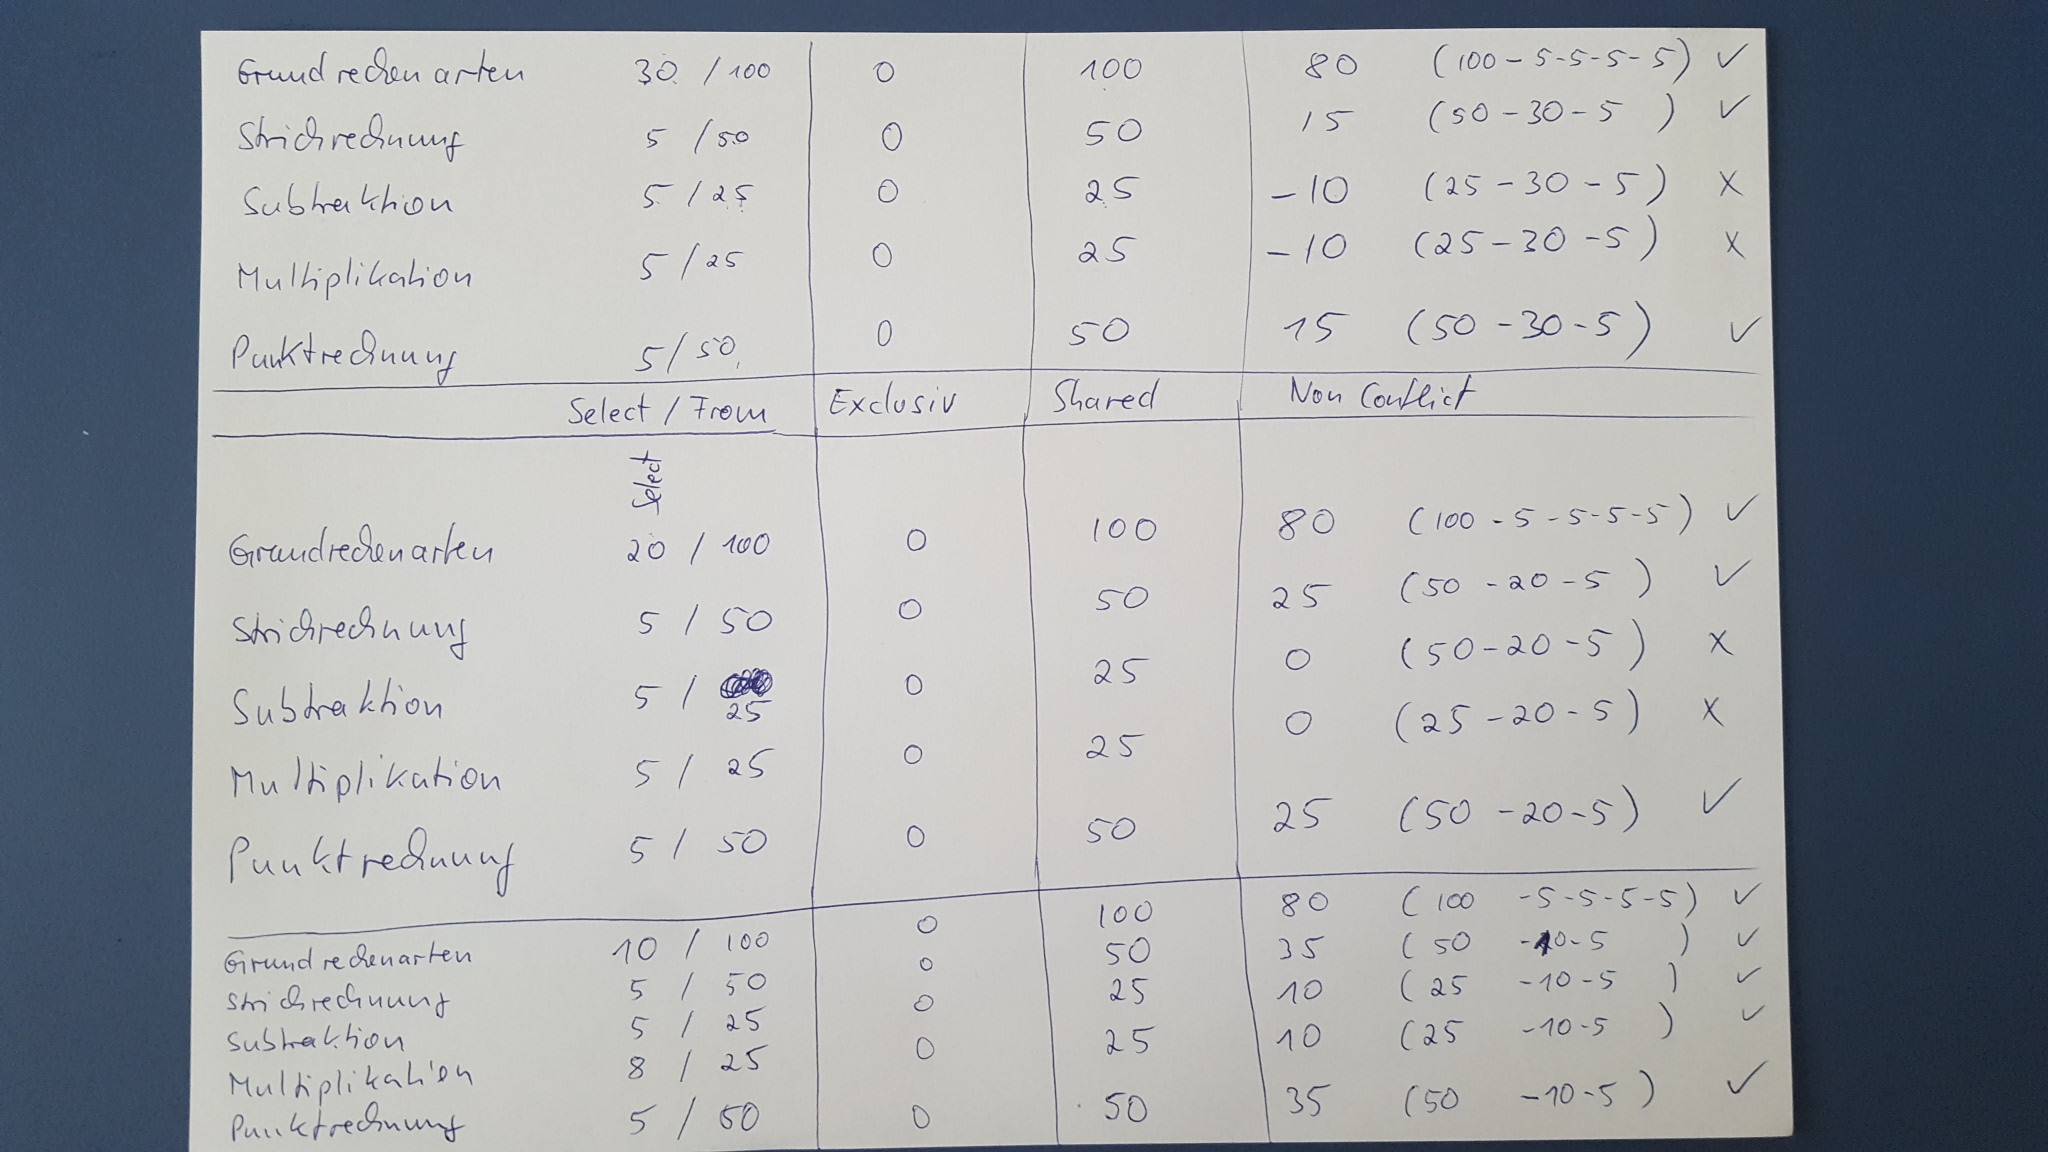 Grundrechenarten 30 / 100 0 100 80 (100 - 5 - 5 - 5 - 5) ✓
Strichrechnung 5 / 50 0 50 15 (50 - 30 - 5 ) ✓
Subtraktion 5 / 25 0 25 -10 (25 - 30 - 5) x
Multiplikation 5 / 25 0 25 -10 (25 - 30 - 5) x
Punktrechnung 5 / 50 0 50 15 (50 - 30 - 5) ✓
Select / From Exclusiv Shared Non Conflict
Select
Grundrechenarten 20 / 100 0 100 80 (100 - 5 - 5 - 5 - 5) ✓
Strichrechnung 5 / 50 0 50 25 (50 - 20 - 5 ) ✓
Subtraktion 5 / 25 0 25 0 (50 - 20 - 5 ) x
Multiplikation 5 / 25 0 25 0 (25 - 20 - 5) x
Punktrechnung 5 / 50 0 50 25 (50 - 20 - 5) ✓
Grundrechenarten 10 / 100 0 100 80 (100 - 5 - 5 - 5 - 5) ✓
Strichrechnung 5 / 50 0 50 35 (50 - 10 - 5 ) ✓
Subtraktion 5 / 25 0 25 10 (25 - 10 - 5 ) ✓
Multiplikation 8 / 25 0 25 10 (25 - 10 - 5 ) ✓
Punktrechnung 5 / 50 0 50 35 (50 - 10 - 5 ) ✓